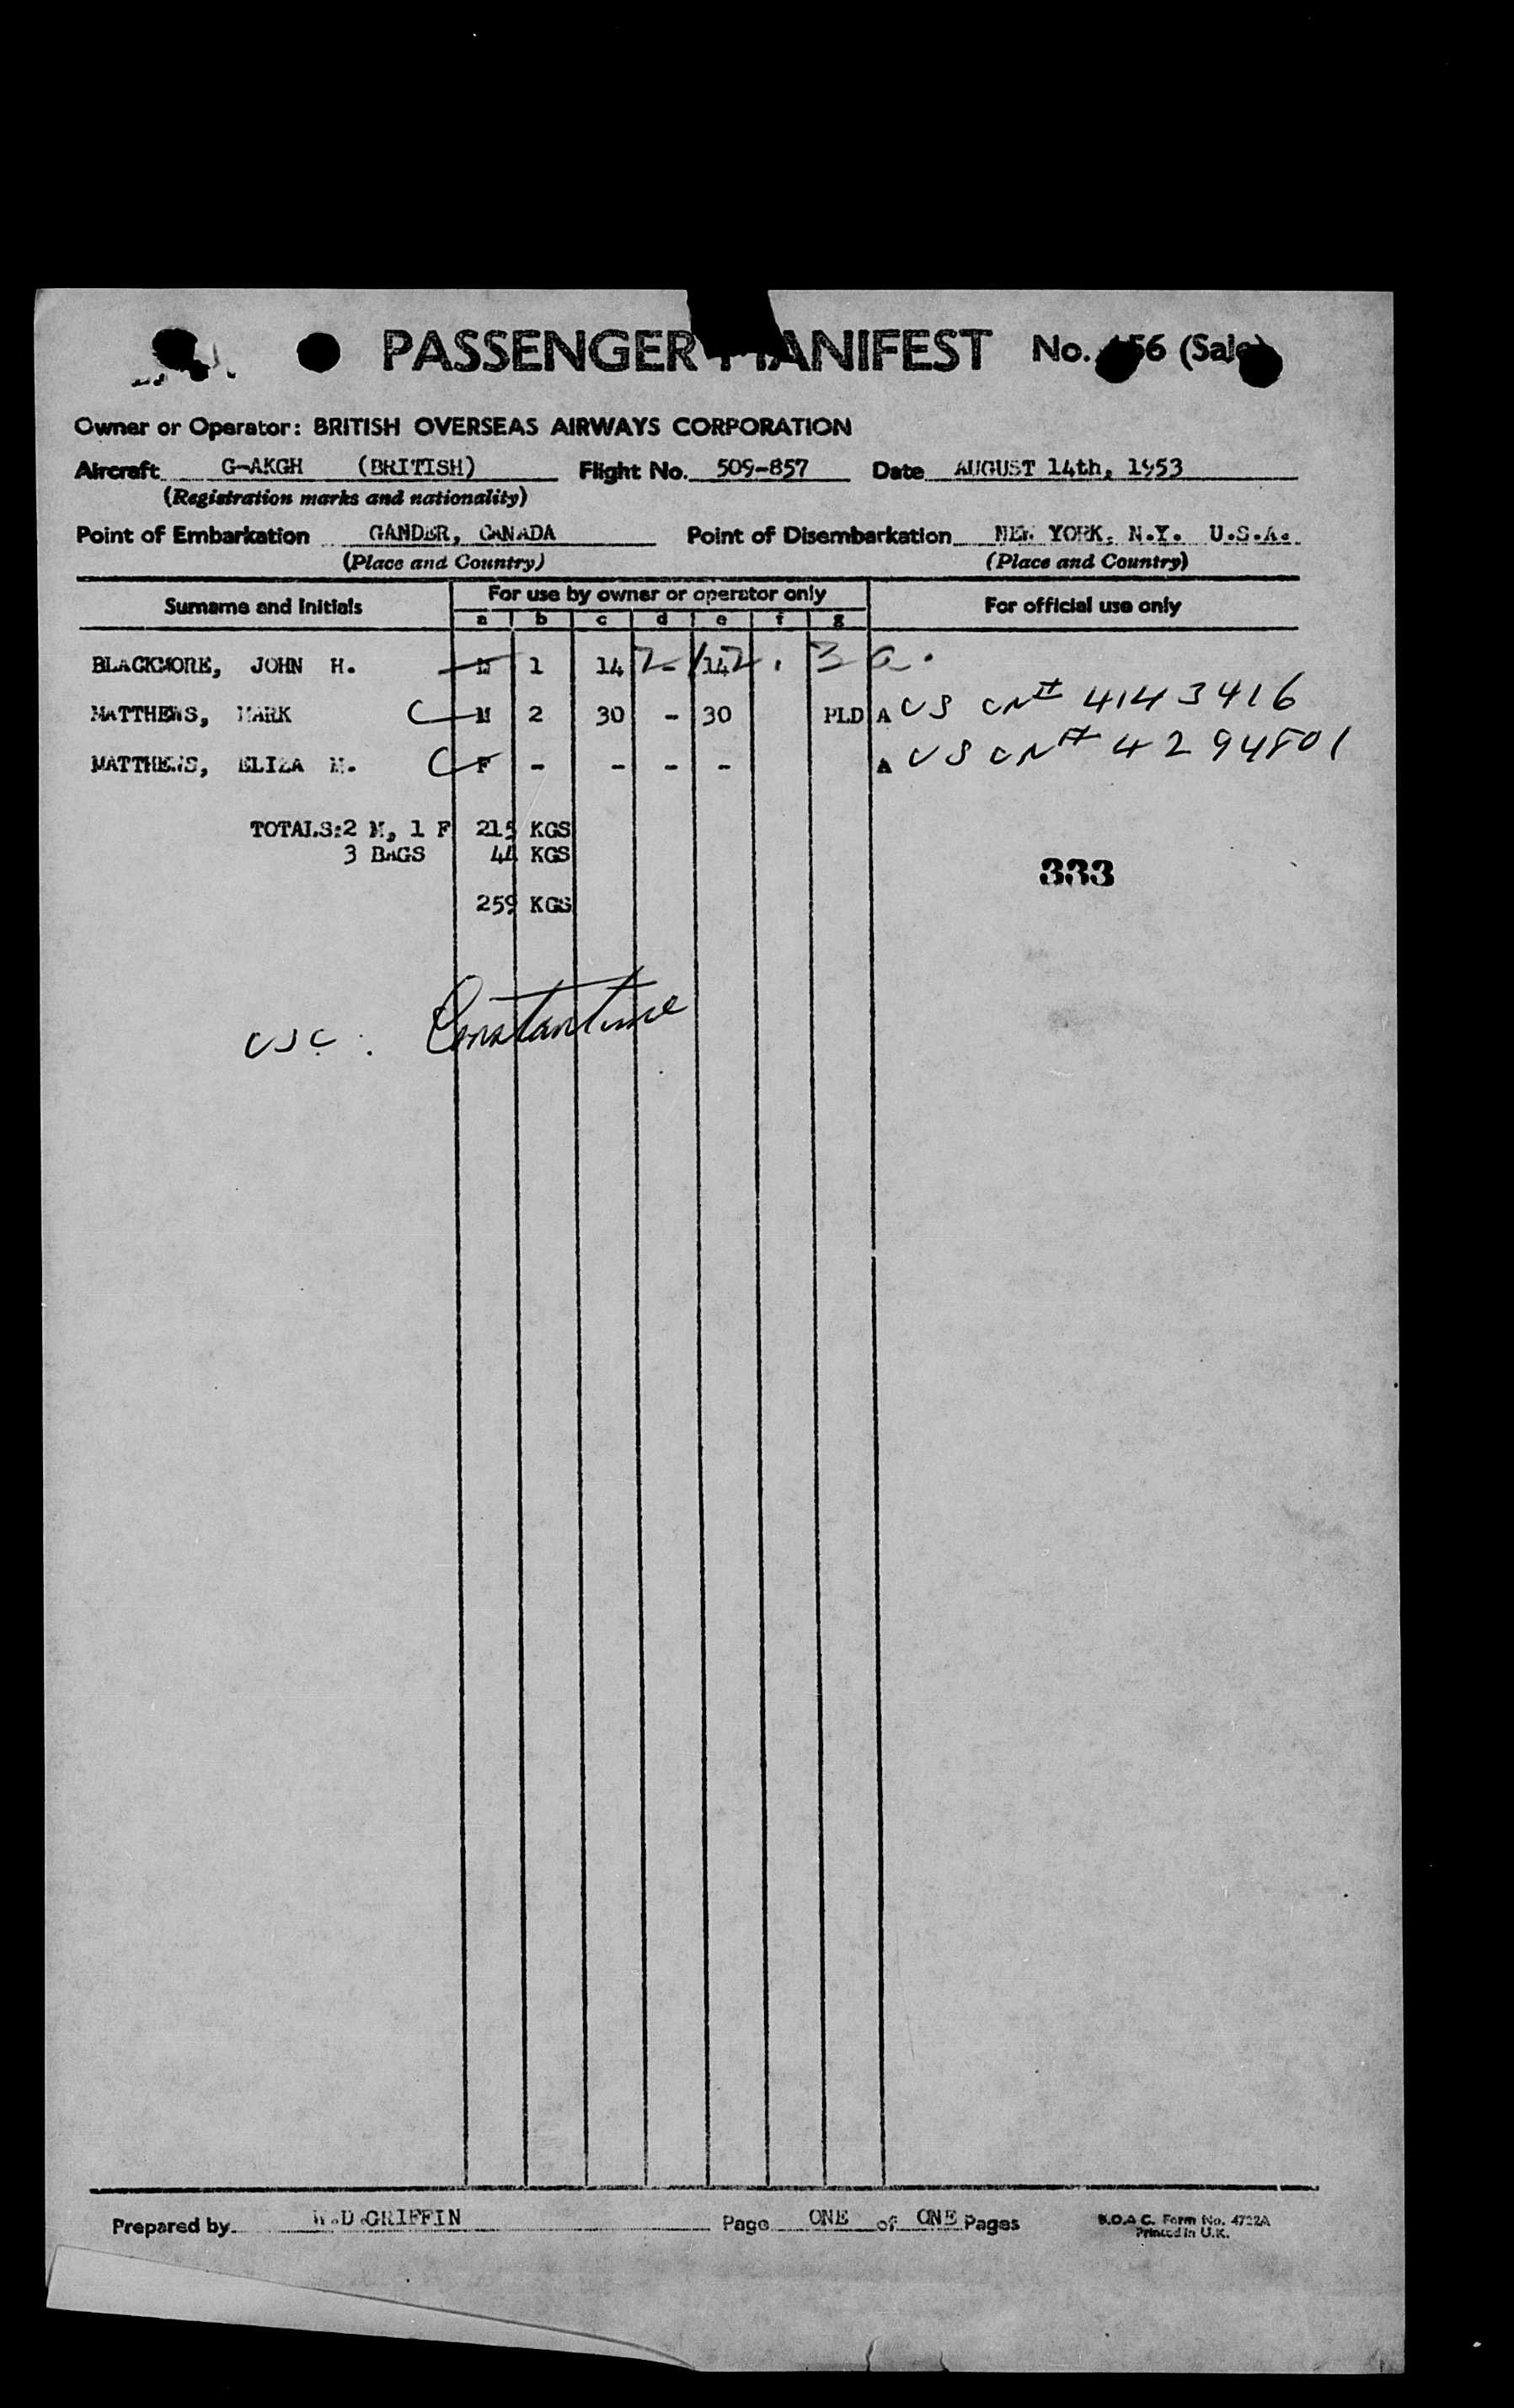 PASSENGER MANIFEST No. 56 (Sale)
Owner or Operator: BRITISH OVERSEAS AIRWAYS CORPORATION
Aircraft G-AKGH (BRITISH) Flight No. 509-857 Date AUGUST 14th, 1953
(Registration marks and nationality)
Point of Embarkation GANDER, CANADA Point of Disembarkation NEW YORK, N.Y. U.S.A.
(Place and Country) (Place and Country)
Surname and Initials For use by owner or operator only For official use only
a b c d e f g
BLACKMORE, JOHN H. M 1 14 2 - 142 . 3 a.
MATTHEWS, MARK C M 2 30 - 30 PLD A US CN# 4143416
MATTHEWS, ELIZA M. C F - - - - A US CN# 4294801
TOTALS:2 M, 1 F 215 KGS
3 BAGS 44 KGS
333
259 KGS
USC: Constantine
Prepared by W.D.GRIFFIN Page ONE of ONE Pages B.O.A.C. Form No. 4722A
Printed in U.K.